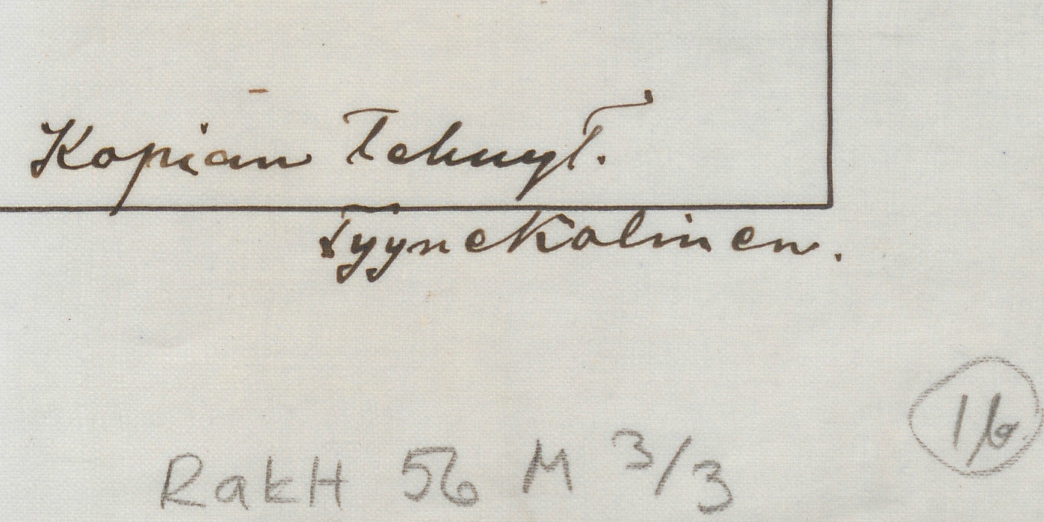 Kopian Tehnyt.
Tyyne Kolinen.
16
RakH 56 M 3/3